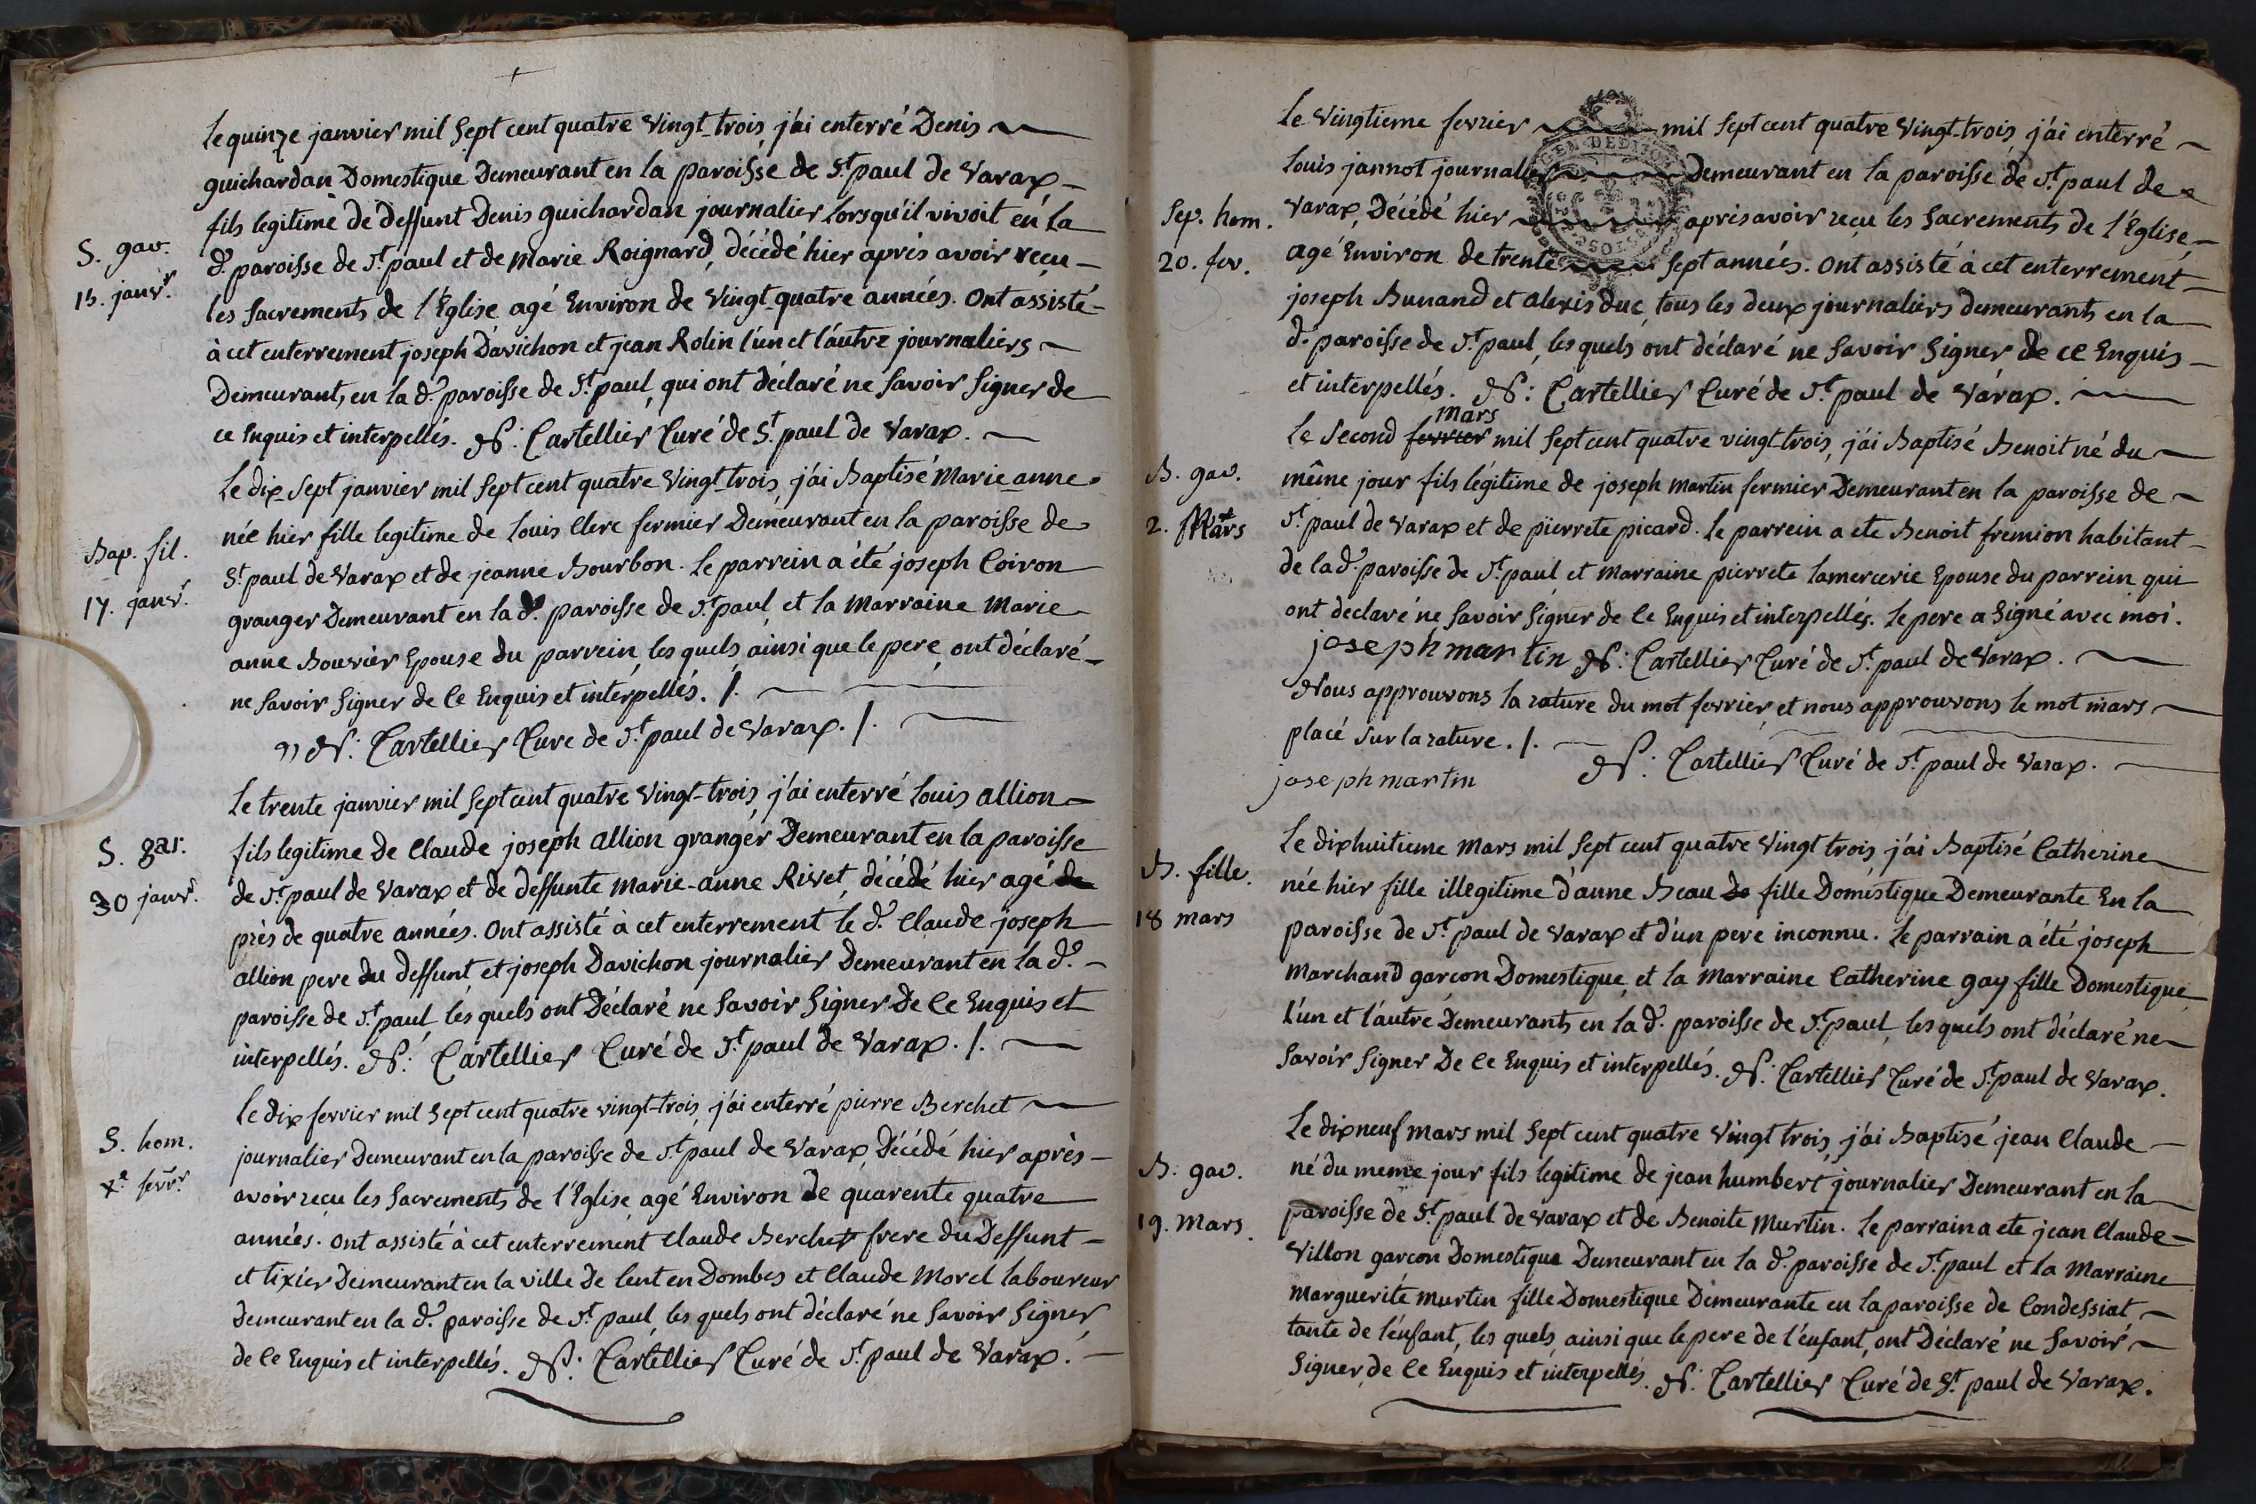 Le quinze janvier mil Sept cent quatre Vingt-trois j'ai enterré Denis
guichardan Domestique Demeurant en la paroisse de St. paul de Varax
fils legitime de deffunt Denis guichardan journalier lorsqu'il vivoit en la
S. gar.
15. janvr.
de. paroisse de St. paul et de Marie Roignard, décédé hier après avoir reçu
les Sacrements de l'Eglise agé Environ de Vingt-quatre années. Ont assisté
à cet enterrement joseph Davichon et jean Rolin l'un et l'autre journaliers
Demeurants en la de. paroisse de St. paul, qui ont déclaré ne Savoir Signer de
ce Enquis et interpellés. N: Cartellier Curé de St. paul de Varax.
Le dix Sept janvier mil Sept cent quatre Vingt-trois, j'ai Baptisé Marie anne
née hier fille legitime de Louis Clerc fermier Demeurant en la paroisse de
Bap. fil.
17. janvr.
St. paul de Varax et de jeanne Bourbon. Le parrein a été joseph Coiron
granger Demeurant en la de. paroisse de St. paul et la Marraine Marie
anne Bouvier Epouse du parrein, les quels, ainsi que le pere, ont déclaré
ne Savoir Signer de Ce Enquis et interpellés. /.
N: Cartellier Curé de St. paul de Varax. /.
Le trente janvier mil Sept cent quatre Vingt-trois, j'ai enterré Louis allion
S. gar.
30 janvr.
fils legitime de Claude joseph allion granger Demeurant en la paroisse
de St. paul de Varax et de deffunte Marie-anne Rivet, décédé hier agé de
près de quatre années. Ont assisté à cet enterrement le d. Claude joseph
allion pere du deffunt et joseph Davichon journalier Demeurant en la de.
paroisse de St. paul, les quels ont Déclaré ne Savoir Signer De Ce Enquis et
interpellés. N: Cartellier Curé de St. paul de Varax. /.
Le dix fevrier mil Sept cent quatre vingt-trois, j'ai enterré pierre Berchet
S. hom.
Xe. fevrr.
journalier Demeurant en la paroisse de St. paul de Varax, Décédé hier après
avoir reçu les Sacrements de l'Eglise, agé Environ de quarente quatre
années. Ont assisté à cet enterrement Claude Berchet frere du Deffunt
et tixier Demeurant en la ville de Lent en Dombes et Claude Morel laboureur
Demeurant en la de. paroisse de St. paul, les quels ont déclaré ne Savoir Signer
de Ce Enquis et interpellés. N: Cartellier Curé de St. paul de Varax.
Le Vingtieme fevrier mil Sept cent quatre Vingt-trois, j'ai enterré
Louis jannot journalier Demeurant en la paroisse de St. paul de
Sep. hom.
20. fev.
Varax, Décédé hier après avoir reçu les Sacrements de l'Eglise,
agé Environ de trente Sept années. Ont assisté à cet enterrement
joseph Bunand et alexis duc, tous les deux journaliers demeurants en la
de. paroisse de St. paul, les quels ont déclaré ne Savoir Signer de ce Enquis
et interpellés. N: Cartellier Curé de St. paul de Varax.
mars
Le Second fevrier mil Sept cent quatre vingt-trois, j'ai Baptisé Benoit né du
B. gar.
2. Mars
même jour fils légitime de joseph martin fermier Demeurant en la paroisse de
St. paul de Varax et de pierrete picard. Le parrein a ete Benoit fremion habitant
de la de. paroisse de St. paul et Marraine pierrete Lamercerie Epouse du parrein qui
ont declaré ne Savoir Signer de Ce Enquis et interpellés. Le pere a Signé avec moi.
joseph martin N: Cartellier Curé de St. paul de Varax.
Nous approuvons la rature du mot fevrier et nous approuvons le mot mars
placé Sur la rature. /. N: Cartellier Curé de St. paul de Varax.
joseph martin
Le dixhuitieme Mars mil Sept cent quatre Vingt trois, j'ai Baptisé Catherine
B. fille.
18 mars
née hier fille illegitime d'anne Beau de fille Domestique Demeurante En la
paroisse de St. paul de Varax et d'un pere inconnu. Le parrain a été joseph
Marchand garcon Domestique, et la Marraine Catherine gay fille Domestique,
L'un et l'autre Demeurants en la de. paroisse de St. paul, les quels ont déclaré ne
Savoir Signer De Ce Enquis et interpellés. N: Cartellier Curé de St. paul de Varax.
Le dixneuf mars mil Sept cent quatre Vingt trois, j'ai Baptisé jean Claude
B. gar.
19. Mars.
né du meme jour fils legitime de jean humbert journalier Demeurant en la
paroisse de St. paul de Varax et de Benoite Murtin. Le parrain a ete jean Claude
Villon garcon Domestique Demeurant en la de. paroisse de St. paul et la Marraine
Marguerite Murtin fille Domestique Demeurante en la paroisse de Condessiat
tante de l'enfant, les quels, ainsi que le pere de l'enfant, ont Déclaré ne Savoir
Signer, de Ce Enquis et interpellés. N: Cartellier Curé de St. paul de Varax.